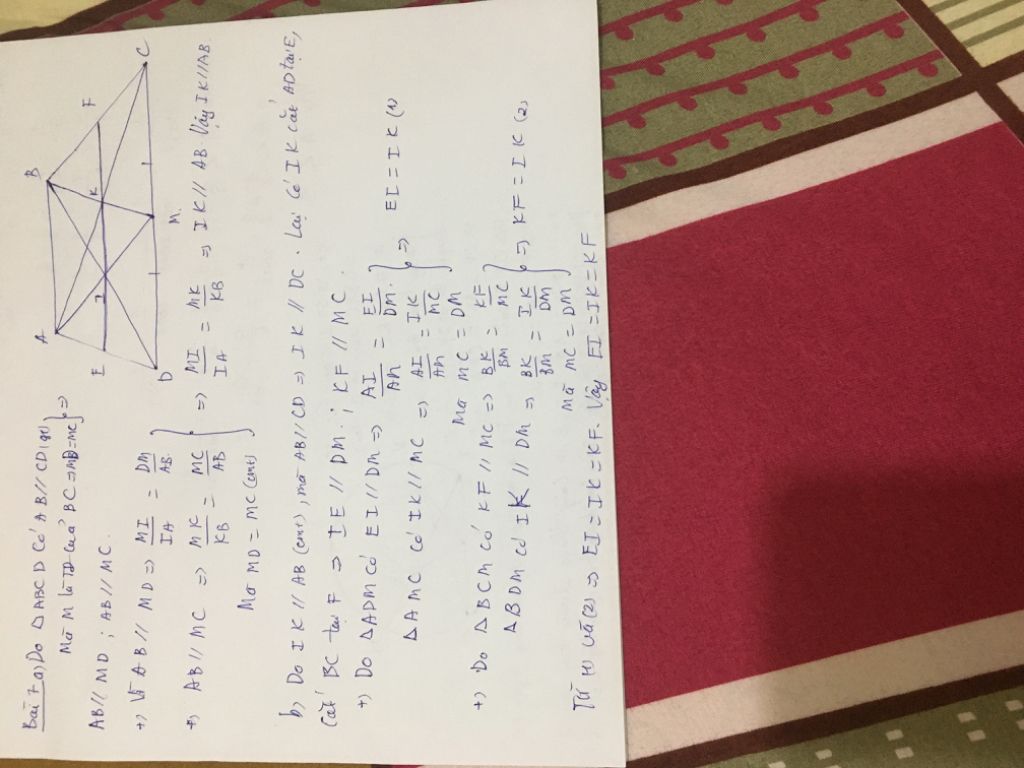 Bài 7 a) Do △ABCD Có AB//CD (gt)
Mà M là TĐ của BC => MD = MC } =>
AB // MD ; AB // MC.
+) Vì AB // MD => MI/IA = DM/AB.
+) AB // MC => MK/KB = MC/AB } => MI/IA = MK/KB => IK // AB. Vậy IK//AB.
Mà MD = MC (cmt)
A B C D E F I K M
b, Do IK // AB (cmt), mà AB // CD => IK // DC. Lại Có IK cắt AD tại E,
Cắt BC tại F => IE // DM ; KF // MC.
+) Do △ADM Có EI // DM => AI/AM = EI/DM.
△AMC Có IK // MC => AI/AM = IK/MC } => EI = IK (1)
Mà MC = DM
+) Do △BCM có KF // MC => BK/BM = KF/MC
△BDM có IK // DM => BK/BM = IK/DM } => KF = IK (2)
Mà MC = DM
Từ (1) và (2) => EI = IK = KF. Vậy EI = IK = KF